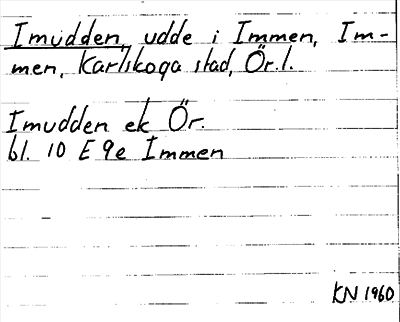 Imudden, udde i Immen, Im-
men, Karlskoga stad, Ör. l.
Imudden ek Ör.
bl. 10 E 9e Immen
KN 1960